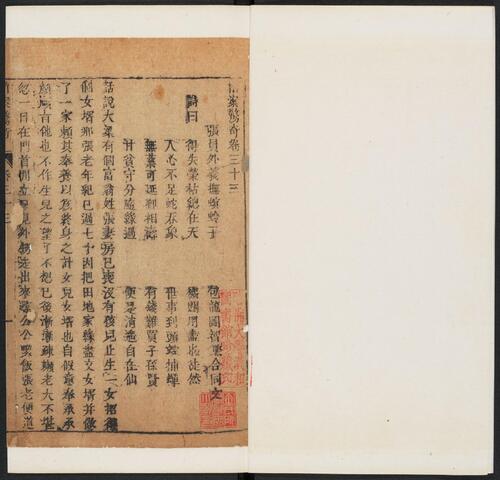 拍案驚奇卷三十三
張員外義撫螟蛉子 包龍圖智賺合同文
詩曰
得失榮枯總在天 機關用盡也徒然
人心不足蛇吞象 世事到頭螳捕蟬
無藥可延卿相壽 有錢難買子孫賢
甘貧守分隨緣過 便是逍遙自在仙
話說大梁有個富翁姓張妻房已喪沒有孩兒止生一女招得
個女壻那張老年紀已過七十因把田地家緣盡交女壻并做
了一家賴其奉養以為終身之計女兒女壻也自假意奉承承
顏順旨他也不作生兒之望了不想已後漸漸疎懶老大不堪
忽一日在門首閒立只見外孫走出來尋公公吃飯張老便道